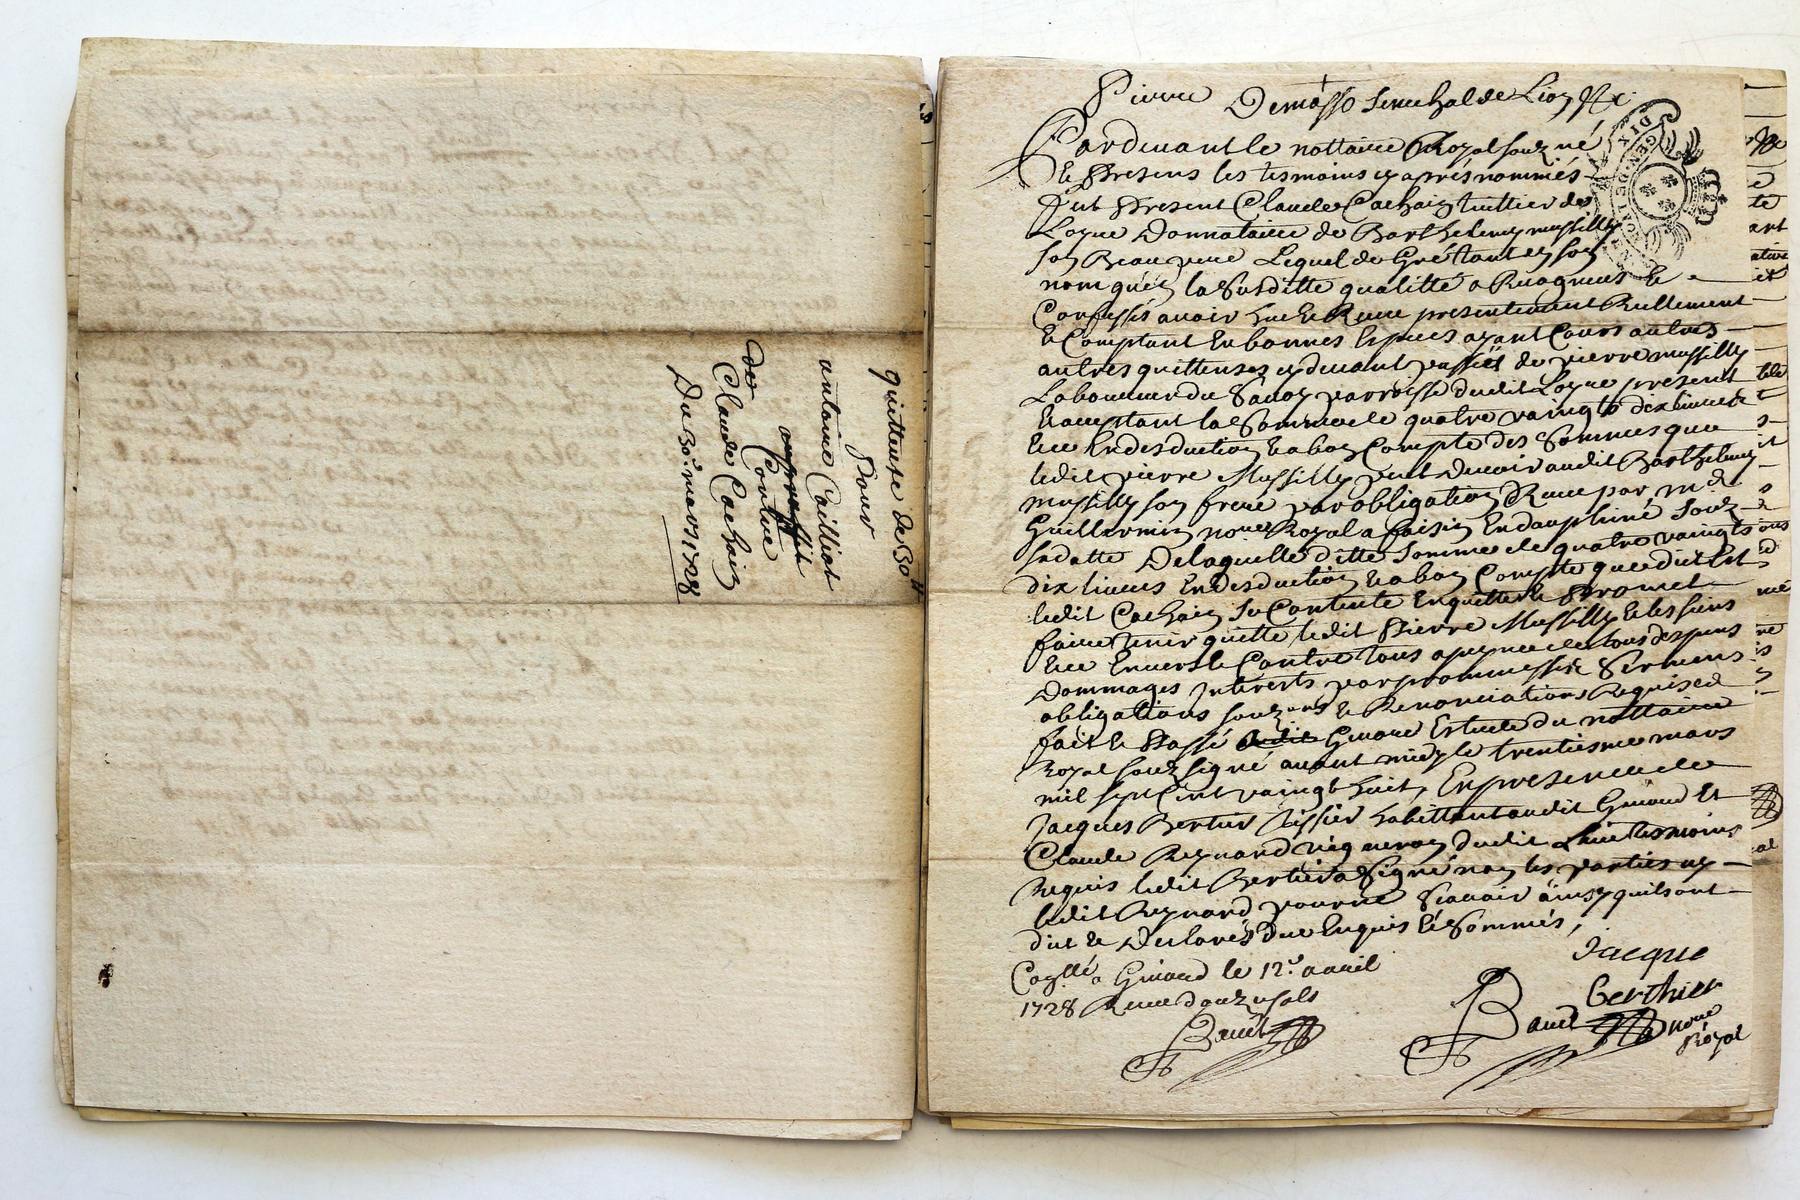 quittense de 30ᵗᵗ
pour
antoine Cailliat
Contre
de
Claude Cachain
Du 30.e mars 1728
Pierre Demasso Senechal de Lion &c
Pardevant le nottaire Royal souz né
Et Presens les tesmoins cy apres nommés
fut Present Claude Cachain tuillier de
Loyne Donnataire de Barthelemy mussilly
son Beau pere Lequel de Gré tant en son
nom qu'en la Susditte qualitté a et
Confessé avoir heu et Receu presentement Reellement
et Comptant En bonnes Especes ayant Cours autres
autres quittenses cy devant passés de pierre mussilly
Laboureur du parroisse dudit Loyne present
Et acceptant la Somme de quatre vaingts dix livres et
Ice En desduction Et a bon Compte des Sommes que
ledit pierre Mussilly peut Devoir audit Barthelemy
mussilly son frere par obligation Receue par me
Guillermin nore Royal a En dauphiné Souz
sa datte De laquelle ditte Somme de quatre vaingts
dix livres En desduction Et a bon Compte que dict Est
ledit Cachain Se Contente En quitte Et Promet
faire tenir quitte ledit Pierre Mussilly Et les siens
Ice Envers et Contre tous a peyne de tous despens
Dommages Interets par prommesses Sermens
obligations souz ons Et Renonciations Requises
fait Et Passé Estude du nottaire
Royal souz signé avant midy le trentiesme mars
mil sept Cent vaingt huit, En presence de
Jacques Bertier Tissier habittant audit Et
Claude Reynard vigneron dudit Lieu tesmoins
requis ledit Bertier a Signé non les parties ny
ledit Reynard pour ne Scavoir ainsy quils ont
dit Et Declarés Due Enquis Et Sommés,
Jacque
berthier
Conllé a le 12.e avril
1728 Receu douze sols
nore
Royal